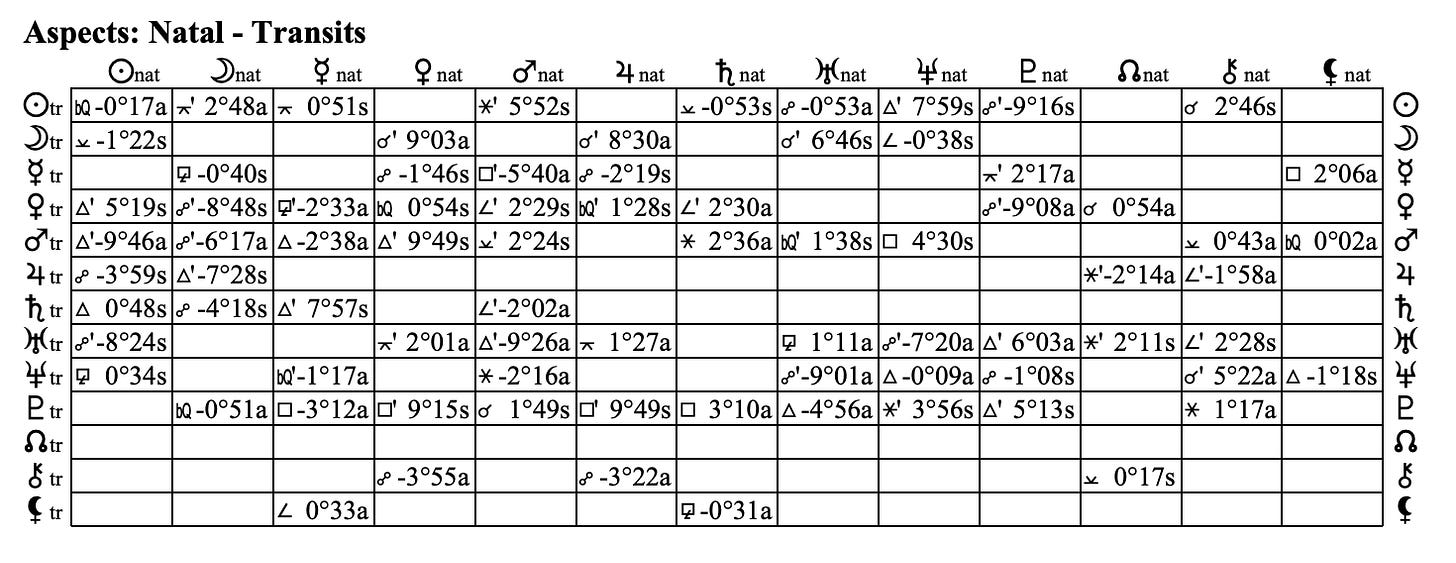 Aspects: Natal - Transits
☉nat ☽nat ☿ nat ♀ nat ♂nat ♃ nat ♄ nat ♅nat ♆ nat ♇ nat ☊nat ⚷ nat ⚸ nat
☉tr bQ -0°17a ⚻' 2°48a ⚻ 0°51s ⚹' 5°52s ⚺ -0°53s ☍ -0°53a △' 7°59s ☍'-9°16s ☌ 2°46s ☉
☽tr ⚺ -1°22s ☌' 9°03a ☌' 8°30a ☌' 6°46s ∠ -0°38s ☽
☿ tr ⚼ -0°40s ☍ -1°46s □'-5°40a ☍ -2°19s ⚻' 2°17a □ 2°06a ☿
♀ tr △' 5°19s ☍'-8°48s ⚼'-2°33a bQ 0°54s ∠' 2°29s bQ' 1°28s ∠' 2°30a ☍'-9°08a ☌ 0°54a ♀
♂tr △'-9°46a ☍'-6°17a △ -2°38a △' 9°49s ⚺' 2°24s ⚹ 2°36a bQ' 1°38s □ 4°30s ⚺ 0°43a bQ 0°02a ♂
♃ tr ☍ -3°59s △'-7°28s ⚹'-2°14a ∠'-1°58a ♃
♄ tr △ 0°48s ☍ -4°18s △' 7°57s ∠'-2°02a ♄
♅tr ☍'-8°24s ⚻' 2°01a △'-9°26a ⚻ 1°27a ⚼ 1°11a ☍'-7°20a △' 6°03a ⚹' 2°11s ∠' 2°28s ♅
♆ tr ⚼ 0°34s bQ'-1°17a ⚹ -2°16a ☍'-9°01a △ -0°09a ☍ -1°08s ☌' 5°22a △ -1°18s ♆
♇ tr bQ -0°51a □ -3°12a □' 9°15s ☌ 1°49s □' 9°49s □ 3°10a △ -4°56a ⚹' 3°56s △' 5°13s ⚹ 1°17a ♇
☊tr ☊
⚷ tr ☍ -3°55a ☍ -3°22a ⚺ 0°17s ⚷
⚸ tr ∠ 0°33a ⚼ -0°31a ⚸